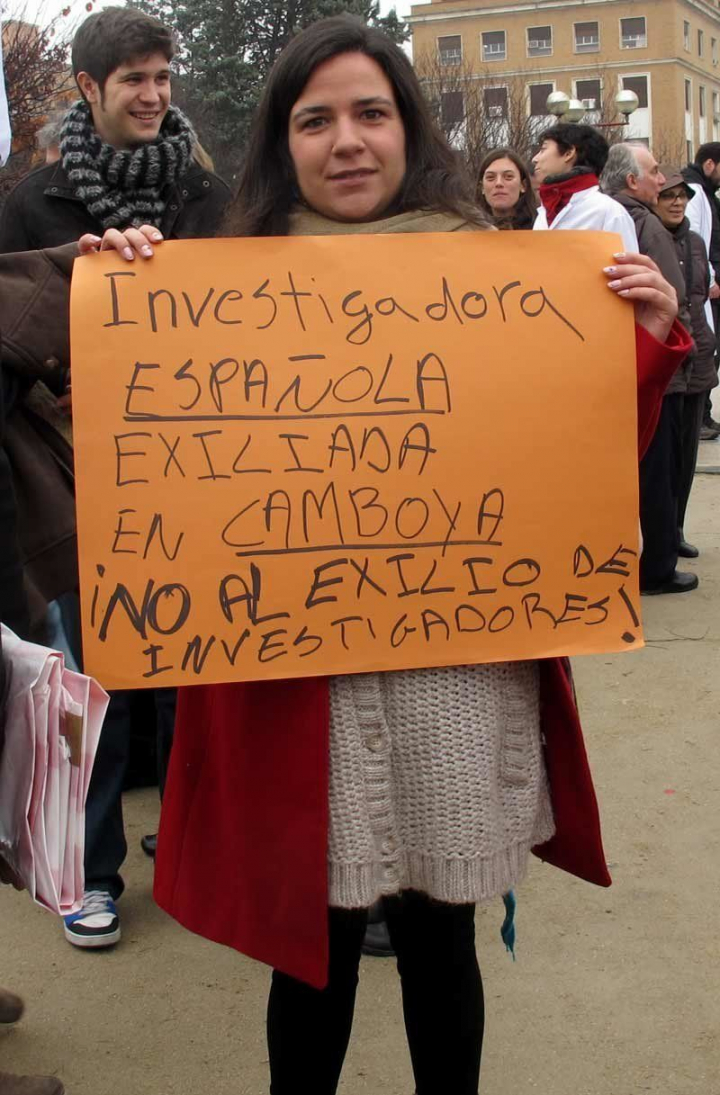 Investigadora
ESPAÑOLA
EXILIADA
EN CAMBOYA
¡NO AL EXILIO DE
INVESTIGADORES!